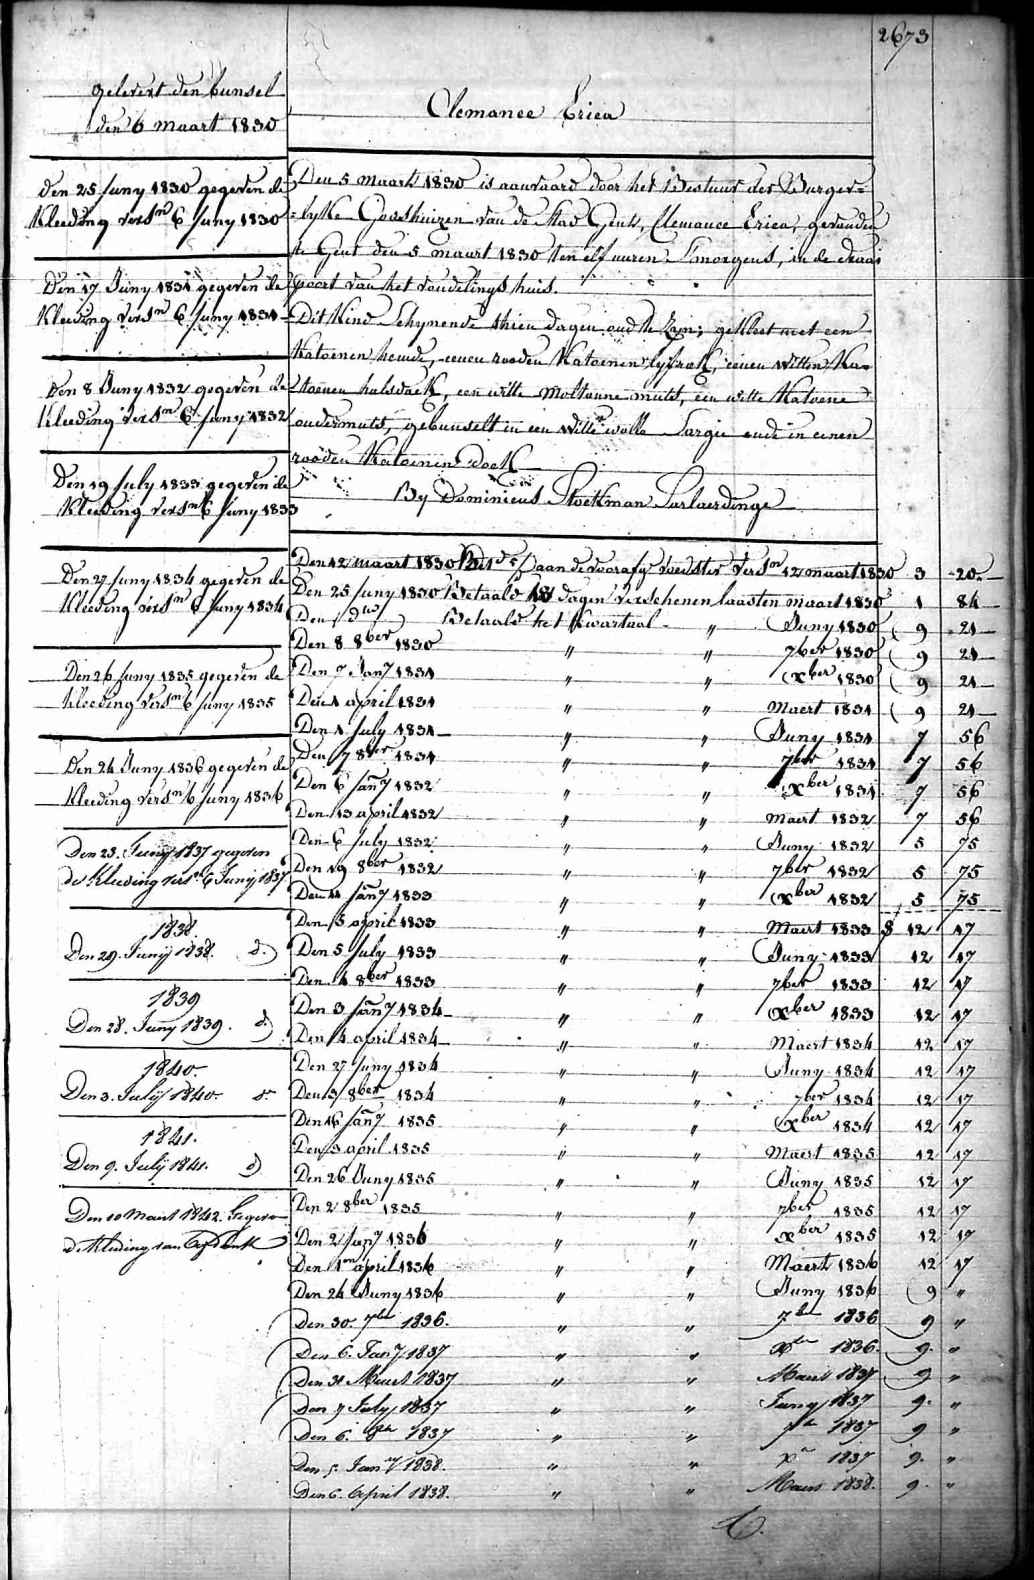 2673
gelevert den bunsel
den 6 maart 1830
Clemance Erica
den 25 Juny 1830 gegeven de
Kleeding vers.n 6 Juny 1830
Den 17 Juny 1831 gegeven de
Kleeding vers.n 6 Juny 1831
Den 8 Juny 1832 gegeven de
Kleeding vers.n 6 Juny 1832
Den 19 July 1833 gegeven de
Kleeding vers.n 6 Juny 1833
Den 27 Juny 1834 gegeven de
Kleeding vers.n 6 Juny 1834
Den 26 Juny 1835 gegeven de
Kleeding vers.n 6 Juny 1835
Den 24 Juny 1836 gegeven de
Kleeding vers.n 6 Juny 1836
Den 23. Juny 1837 gegeven
de Kleeding vers.n 6 Juny 1837
1838.
Den 29. Juny 1838. d.
1839
Den 28. Juny 1839. d.
1840.
Den 3. July 1840. d.
1841.
Den 9. July 1841. d.
Den 10 Maart 1842. Gegeven
de Kleeding van
Den 5 maart 1830 is aanvaard door het Bestuur der Burger=
=lyke Godshuizen van de Stad Gent, Clemance Erica, gevonden
te Gent den 5 maart 1830 ten elf uuren Smorgens, in de draai
poort van het vondelings huis.
Dit Kind Schynende thien dagen oud te zyn; gekleet met een
Katoenen hemde, eenen rooden Katoenen lyfrok, eenen witten Ka=
=toenen halsdoek, een witte moltonne mutst, een witte Katoene
ondermuts, gebunselt in een witte wolle Sargie ende in eenen
rooden Katoenen doek
By Dominicus Stockman Saelaerdinge
Den 12 maart 1830 aan de voorafg voedster vers.n 12 maart 1830 3 20
Den 25 Juny 1830 Betaald 18 dagen verschenen laasten maart 1830 1 84
Den do Betaald het Kwartaal " Juny 1830 9 21
Den 8 8ber 1830 " " 7ber 1830 9 21
Den 7 Jany 1831 " " Xber 1830 9 21
Den 1 april 1831 " " Maert 1831 9 21
Den 1 July 1831 " " Juny 1831 7 56
Den 7 8ber 1831 " " 7ber 1831 7 56
Den 6 Jany 1832 " " Xber 1831 7 56
Den 13 april 1832 " " Maert 1832 7 56
Den 6 July 1832 " " Juny 1832 5 75
Den 19 8ber 1832 " " 7ber 1832 5 75
Den 11 Jany 1833 " " Xber 1832 5 75
Den 5 april 1833 " " Maert 1833 12 17
Den 5 July 1833 " " Juny 1833 12 17
Den 4 8ber 1833 " " 7ber 1833 12 17
Den 3 Jany 1834 " " Xber 1833 12 17
Den 4 april 1834 " " Maert 1834 12 17
Den 27 Juny 1834 " " Juny 1834 12 17
Den 3 8ber 1834 " " 7ber 1834 12 17
Den 16 Jany 1835 " " Xber 1834 12 17
Den 3 april 1835 " " Maert 1835 12 17
Den 26 Juny 1835 " " Juny 1835 12 17
Den 2 8ber 1835 " " 7ber 1835 12 17
Den 2 Jany 1836 " " Xber 1835 12 17
Den 1 april 1836 " " Maert 1836 12 17
Den 24 Juny 1836 " " Juny 1836 9 "
Den 30. 7ber 1836. " " 7ber 1836 9 "
Den 6. Jany 1837 " " Xber 1836. 9. "
Den 31 Maert 1837 " " Maert 1837 9 "
Den 7 July 1837 " " Juny 1837 9. "
Den 6. 8ber 1837 " " 7ber 1837 9 "
Den 5. Jany 1838. " " Xr 1837 9. "
Den 6. April 1838. " " Maert 1838. 9. "